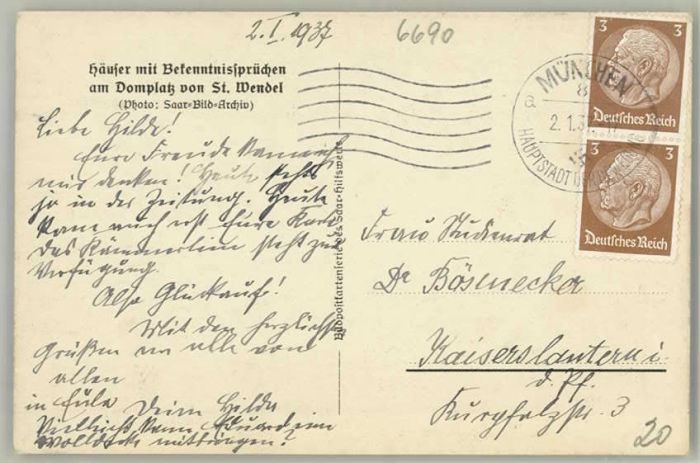 2.I.1937
6690
Häuser mit Bekenntnissprüchen
am Domplatz von St. Wendel
(Photo: Saar-Bild-Archiv)
Liebe Hilde!
Eure Freude kann ich
mir denken! Heute steht's
ja in der Zeitung. Heute
kam auch erst Eure Karte
Das Kämmerlein steht zur
Verfügung.
Also Glückauf!
Mit den herzlichsten
Grüßen an alle von
allen
in Eula Deine Hilde
Vielleicht kann Eduard eine
Wolldecke mitbringen?
Bildpostkartenserie des Saar-Hilfswerks
MÜNCHEN
2.1.37
HAUPTSTADT
3 3
Deutsches Reich
3 3
Deutsches Reich
Frau Studienrat
Dr Bösenecker
Kaiserslautern i.
d. Pf.
Kurpfalzstr. 3
20